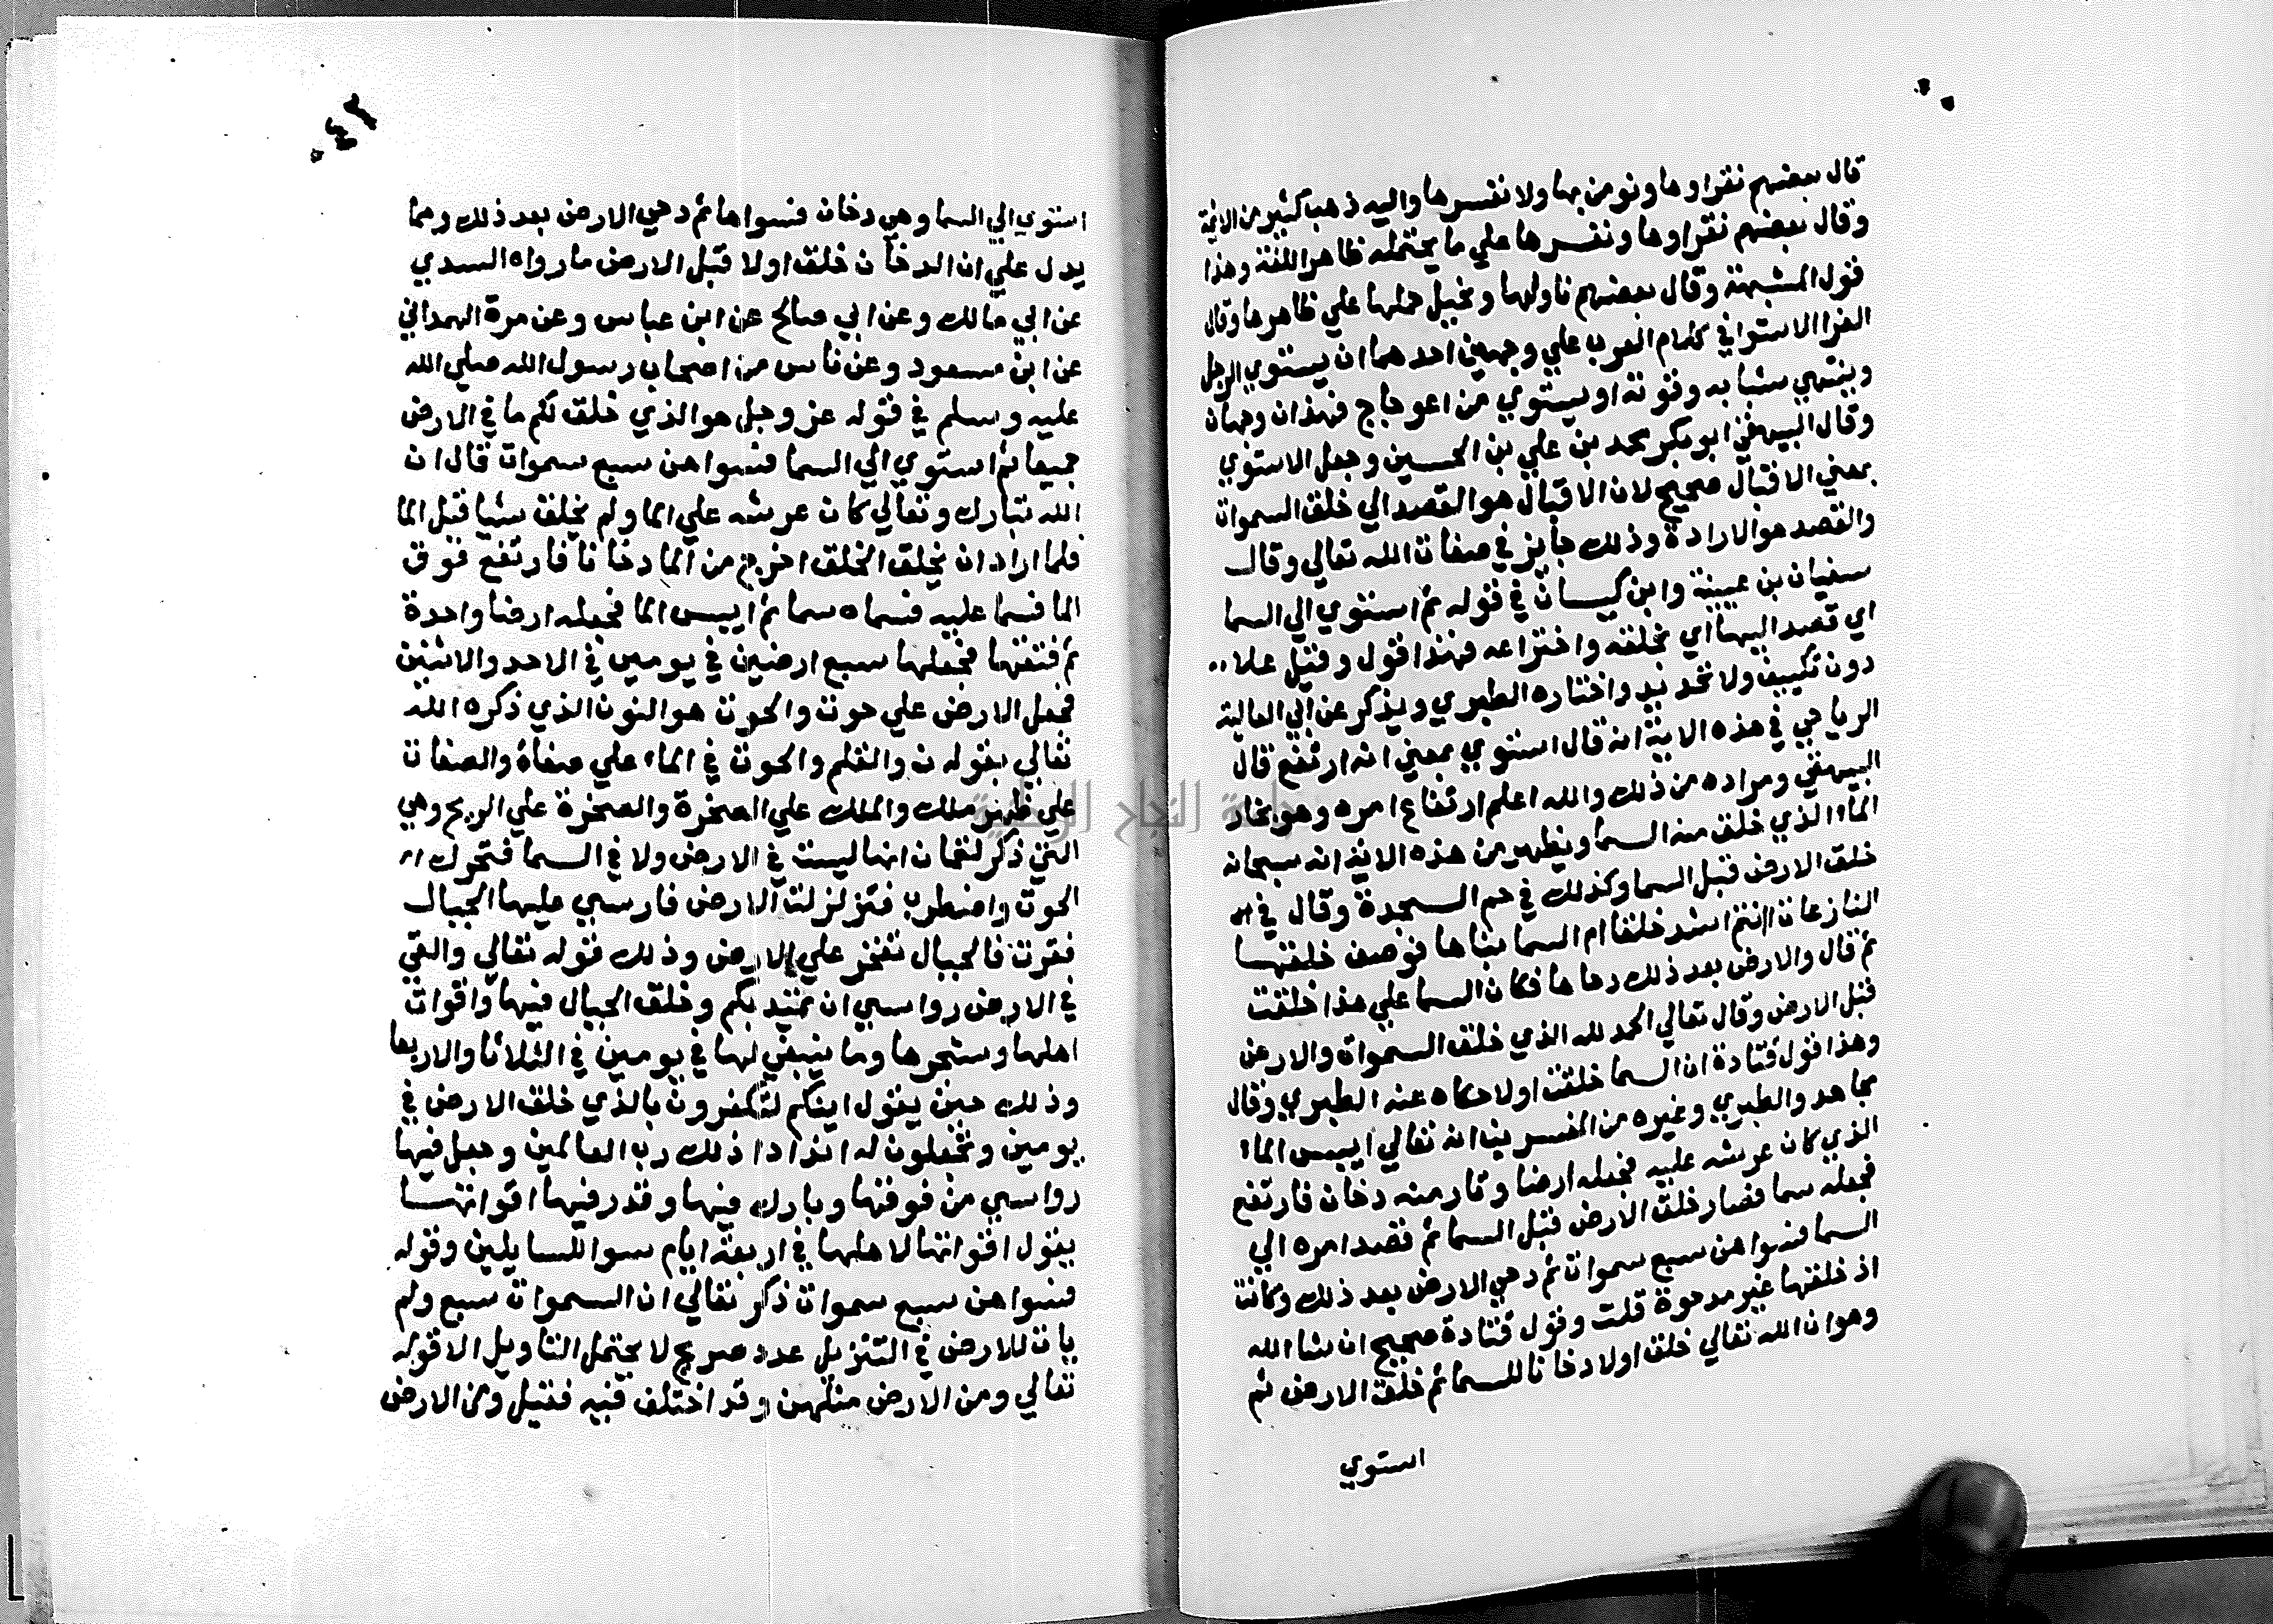 قال بعضهم نقراوها ونومن بها ولا نفسرها واليه ذهب كثير من الايمة
وقال بعضهم نقراوها ونفسرها علي ما يحتمله ظاهر اللغة وهذا
قول المشبهة وقال بعضهم ناولها ونحيل حملها علي ظاهرها وقال
الفرا الاستوا في كلام العرب علي وجهين احدهما ان يستوي الرجل
وينتهي شبابه وقوته او يستوي من اعوجاج فهذان وجهان
وقال البيهقي ابو بكر محمد بن علي بن الحسين وجعل الاستوي
بمعني الاقبال صحيح لان الاقبال هو القصد الي خلق السموات
والقصد هو الارادة وذلك جايز في صفات الله تعالي وقال
سفيان بن عيينة وابن كيسان في قوله ثم استوي الي السما
اي قصد اليها اي بخلقه واختراعه فهذا قول وقيل علا
دون تكييف ولا تحديد واختاره الطبري ويذكر عن ابي العالية
الرياحي في هذه الاية انه قال استوي بمعني انه ارتفع قال
البيهقي ومراده من ذلك والله اعلم ارتفاع امره وهو بخار
الماء الذي خلق منه السما ويظهر من هذه الاية انه سبحانه
خلق الارض قبل السما وكذلك في حم السجدة وقال في
النازعات اانتم اشد خلقا ام السما بناها فوصف خلقها
ثم قال والارض بعد ذلك دحاها فكان السما علي هذا خلقت
قبل الارض وقال تعالي الحمد لله الذي خلق السموات والارض
وهذا قول قتادة ان السما خلقت اولا حكاه عنه الطبري وقال
مجاهد والطبري وغيره من المفسرين انه تعالي ايبس الماء
الذي كان عرشه عليه فجعله ارضا وثار منه دخان فارتفع
فجعله سما فصار خلق الارض قبل السما ثم قصد امره الي
السما فسواهن سبع سموات ثم دحي الارض بعد ذلك وكانت
اذ خلقها غير مدحوة قلت وقول قتادة صحيح ان شا الله
وهو ان الله تعالي خلق اولا دخانا للسما ثم خلق الارض ثم
استوي
٤٢
استوي الي السما وهي دخان فسواها ثم دحي الارض بعد ذلك ومما
يدل علي ان الدخان خلق اولا قبل الارض ما رواه السدي
عن ابي مالك وعن ابي صالح عن ابن عباس وعن مرة الهمداني
عن ابن مسعود وعن ناس من اصحاب رسول الله صلي الله
عليه وسلم في قوله عز وجل هو الذي خلق لكم ما في الارض
جميعا ثم استوي الي السما فسواهن سبع سموات قال ان
الله تبارك وتعالي كان عرشه علي الما ولم يخلق شيا قبل الما
فلما اراد ان يخلق الخلق اخرج من الما دخانا فارتفع فوق
الما فسما عليه فسماه سما ثم ايبس الما فجعله ارضا واحدة
ثم فتقها فجعلها سبع ارضين في يومين في الاحد والاثنين
فجعل الارض علي حوت والحوت هو النون الذي ذكره الله
تعالي بقوله ن والقلم والحوت في الماء علي صفاة والصفات
علي ظهر ملك والملك علي الصخرة والصخرة علي الريح وهي
التي ذكر لقمان انها ليست في الارض ولا في السما فتحرك
الحوت واضطرب فتزلزلت الارض فارسي عليها الجبال
فقرت فالجبال تفخر علي الارض وذلك قوله تعالي والقي
في الارض رواسي ان تميد بكم وخلق الجبال فيها واقوات
اهلها وشجرها وما ينبغي لها في يومين في الثلاثا والاربعا
وذلك حين يقول اينكم لتكفرون بالذي خلق الارض في
يومين وتجعلون له اندادا ذلك رب العالمين وجعل فيها
رواسي من فوقها وبارك فيها وقدر فيها اقواتها
يقول اقواتها لاهلها في اربعة ايام سوا للسايلين وقوله
فسواهن سبع سموات ذكر تعالي ان السموات سبع ولم
يات للارض في التنزيل عدد صريح لا يحتمل التاويل الا قوله
تعالي ومن الارض مثلهن وقد اختلف فيه فقيل ومن الارض